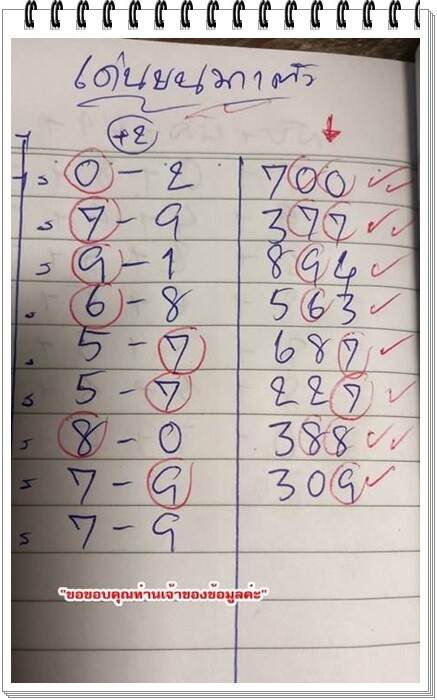 เด่นบนมาแล้ว
+2
0 - 2 700
7 - 9 377
9 - 1 894
6 - 8 563
5 - 7 687
5 - 7 227
8 - 0 388
7 - 9 309
7 - 9
"ขอขอบคุณท่านเจ้าของข้อมูลค่ะ"